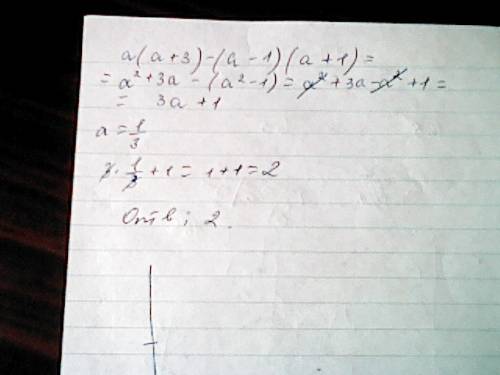 a(a+3)-(a-1)(a+1)=
=a²+3a-(a²-1)=a²+3a-a²+1=
= 3a+1
a=1/3
3·1/3+1=1+1=2
Отв: 2.